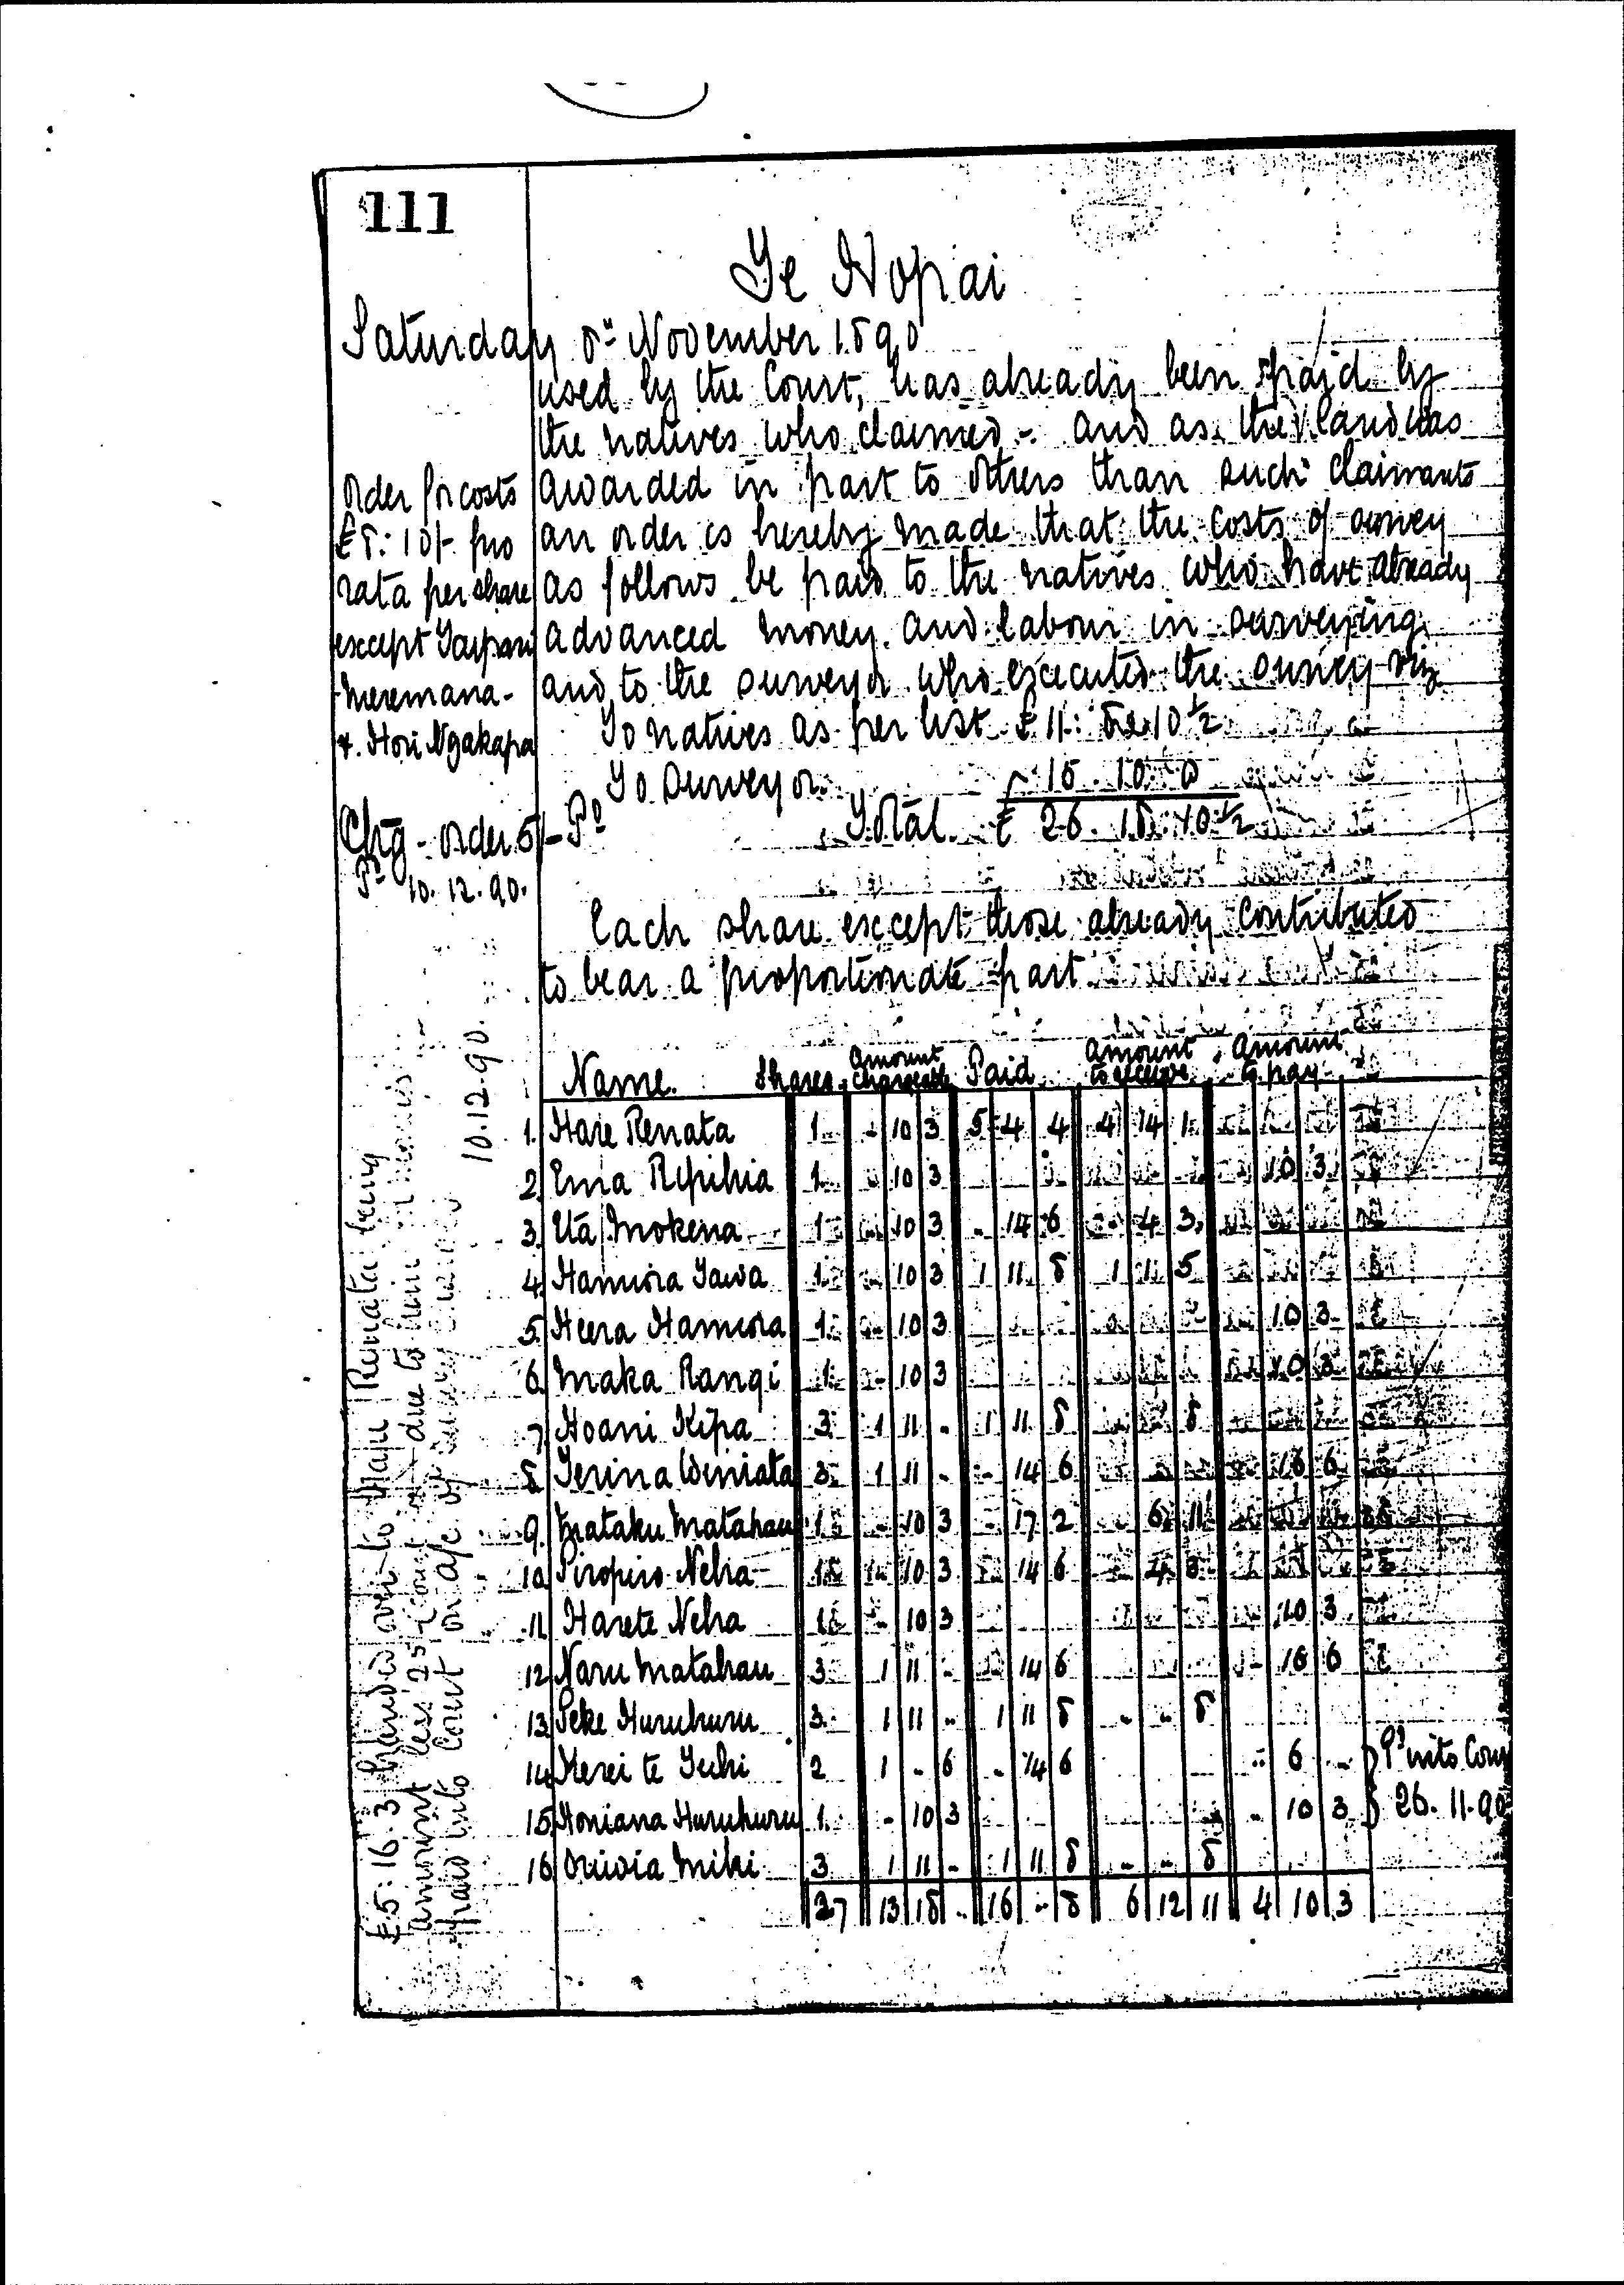 111
Te Nopai
Saturday 8th November 1890
used by the Court, has already been paid by
the natives who claimed - and as the land was
awarded in part to others than such claimants
an order is hereby made that the costs of survey
as follows be paid to the natives who have already
advanced money and labour in surveying
and to the surveyor who executed the survey viz
To natives as per list £ 11: 8: 10 1/2
To Surveyor 15. 10. 0
Total £ 26. 18. 10 1/2
Order for costs
£8: 10/- pro
rata per share
except
Meremana -
& Hori Ngakapa
Chg - order 5/- Pd
Pd 10. 12. 90.
Each share except those already contributed
to bear a proportionate part
Name. Shares Amount chargeable Paid Amount to receive Amount to pay
1. Hare Renata 1 - 10 3 5 4 4 4 14 1
2. Ema Repihia 1 - 10 3 10 3
3. Uta Mokena 1 - 10 3 - 14 6 - 4 3
4. Hamiora Tawa 1 - 10 3 1 11 8 1 1 5
5. Heera Hamiora 1 - 10 3 10 3
6. Maka Rangi 1 - 10 3 10 3
7. Hoani Kipa 3 1 11 - 1 11 8 8
8. Terina Winiata 3 1 11 - - 14 6 16 6
9. Mataku Matahau 1 - 10 3 - 17 2 6 11
10. Piropiro Neha 1 - 10 3 - 14 6 - 4 3
11. Harete Neha 1 - 10 3 - 10 3
12. Naru Matahau 3 1 11 - - 14 6 - 16 6
13. Peke Huruhuru 3 1 11 - 1 11 8 - - 8
14. Merei te Tuhi 2 1 - 6 - 14 6 - 6 - } Pd into Court
15. Honiana Huruhuru 1 - 10 3 - 10 3 } 26. 11. 90
16. Oriwia Mihi 3 1 11 - 1 11 8 - - 8
27 13 18 - 16 - 8 6 12 11 4 10 3
£5: 16. 3 handed over to Renata being
amount less 25/- due to him
paid into Court on a/c of survey
10.12.90.